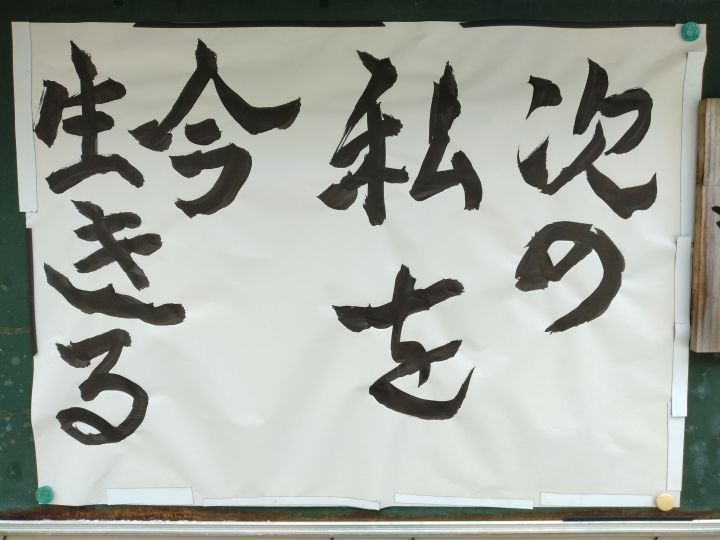 次の
私を
今
生きる